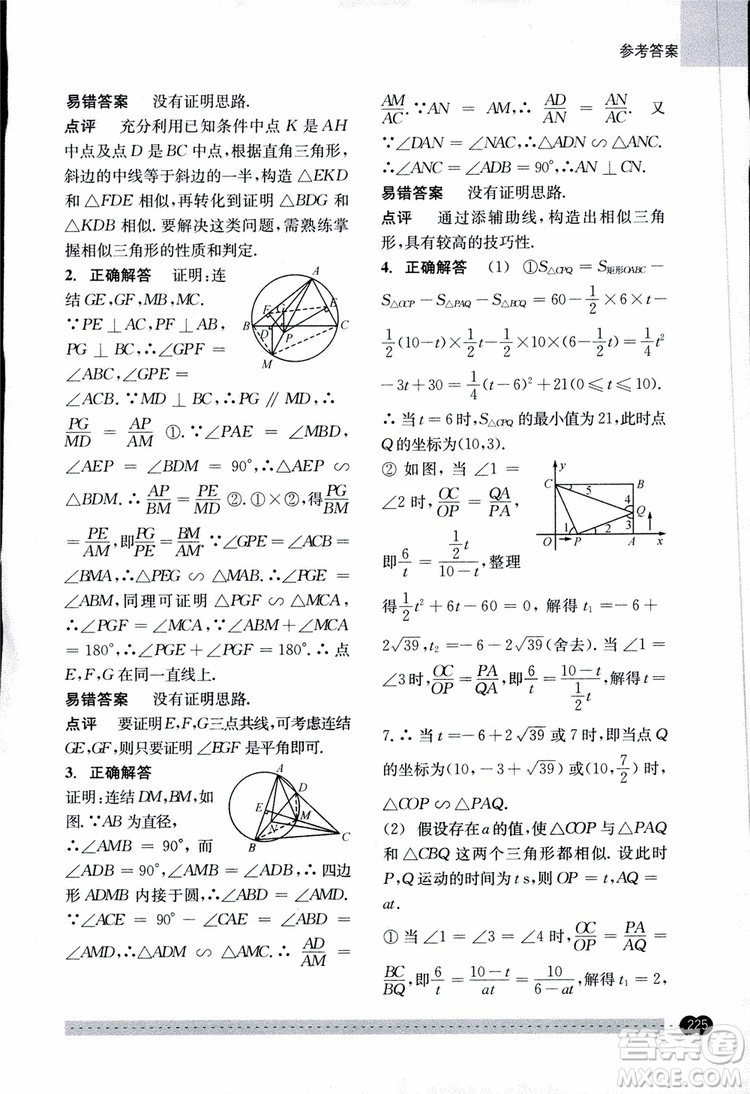 参考答案
易错答案 没有证明思路.
点评 充分利用已知条件中点 K 是 AH
中点及点 D 是 BC 中点,根据直角三角形,
斜边的中线等于斜边的一半,构造 △EKD
和 △FDE 相似,再转化到证明 △BDG 和
△KDB 相似.要解决这类问题,需熟练掌
握相似三角形的性质和判定.
2. 正确解答 证明:连
结 GE,GF,MB,MC.
∵PE ⊥ AC,PF ⊥ AB,
MD ⊥ BC,∴∠GPF =
∠ABC,∠GPE =
∠ACB.∵MD ⊥ BC,∴PG ∥ MD,∴
PG/MD = AP/AM ①.∵∠PAE = ∠MBD,
∠AEP = ∠BDM = 90°,∴△AEP ∽
△BDM.∴ AP/BM = PE/MD ②.①×②,得 PG/BM
= PE/AM,即 PG/PE = BM/AM.∵∠GPE = ∠ACB =
∠BMA,∴△PEG ∽ △MAB.∴∠PGE =
∠ABM,同理可证明 △PGF ∽ △MCA,
∴∠PGF = ∠MCA.∵∠ABM + ∠MCA
= 180°,∴∠PGE + ∠PGF = 180°.∴ 点
E,F,G 在同一直线上.
易错答案 没有证明思路.
点评 要证明 E,F,G 三点共线,可考虑连结
GE,GF,则只要证明 ∠EGF 是平角即可.
3. 正确解答
证明:连结 DM,BM,如
图.∵AB 为直径,
∴∠AMB = 90°,而
∠ADB = 90°,∴∠AMB = ∠ADB,∴ 四边
形 ADMB 内接于圆,∴∠ABD = ∠AMD.
∵∠ACE = 90° − ∠CAE = ∠ABD =
∠AMD,∴△ADM ∽ △AMC.∴ AD/AM =
AM/AC.∵AN = AM,∴ AD/AN = AN/AC. 又
∵∠DAN = ∠NAC,∴△ADN ∽ △ANC.
∴∠ANC = ∠ADB = 90°,∴AN ⊥ CN.
易错答案 没有证明思路.
点评 通过添辅助线,构造出相似三角
形,具有较高的技巧性.
4. 正确解答 (1) ①S△CPQ = S矩形OABC −
S△OCP − S△PAQ − S△BCQ = 60 − 1/2 × 6 × t −
1/2(10 − t) × 1/2 t − 1/2 × 10 × (6 − 1/2 t) = 1/4 t²
− 3t + 30 = 1/4 (t − 6)² + 21(0 ⩽ t ⩽ 10).
∴ 当 t = 6 时,S△CPQ 的最小值为 21,此时点
Q 的坐标为(10,3).
② 如图,当 ∠1 =
∠2 时, OC/OP = QA/PA,
即 6/t = (1/2 t)/(10 − t),整理
得 1/2 t² + 6t − 60 = 0, 解得 t₁ = − 6 +
2√39,t₂ = − 6 − 2√39(舍去). 当 ∠1 =
∠3 时, OC/OP = PA/QA,即 6/t = (10 − t)/(1/2 t),解得 t =
7. ∴ 当 t = − 6 + 2√39 或 7 时,即当点 Q
的坐标为(10, − 3 + √39) 或 (10, 7/2) 时,
△COP ∽ △PAQ.
(2) 假设存在 a 的值,使 △COP 与 △PAQ
和 △CBQ 这两个三角形都相似. 设此时
P,Q 运动的时间为 t s,则 OP = t,AQ =
at.
① 当 ∠1 = ∠3 = ∠4 时, OC/OP = PA/AQ =
BC/BQ,即 6/t = (10 − t)/at = 10/(6 − at),解得 t₁ = 2,
225
答案圈
MXQE.COM